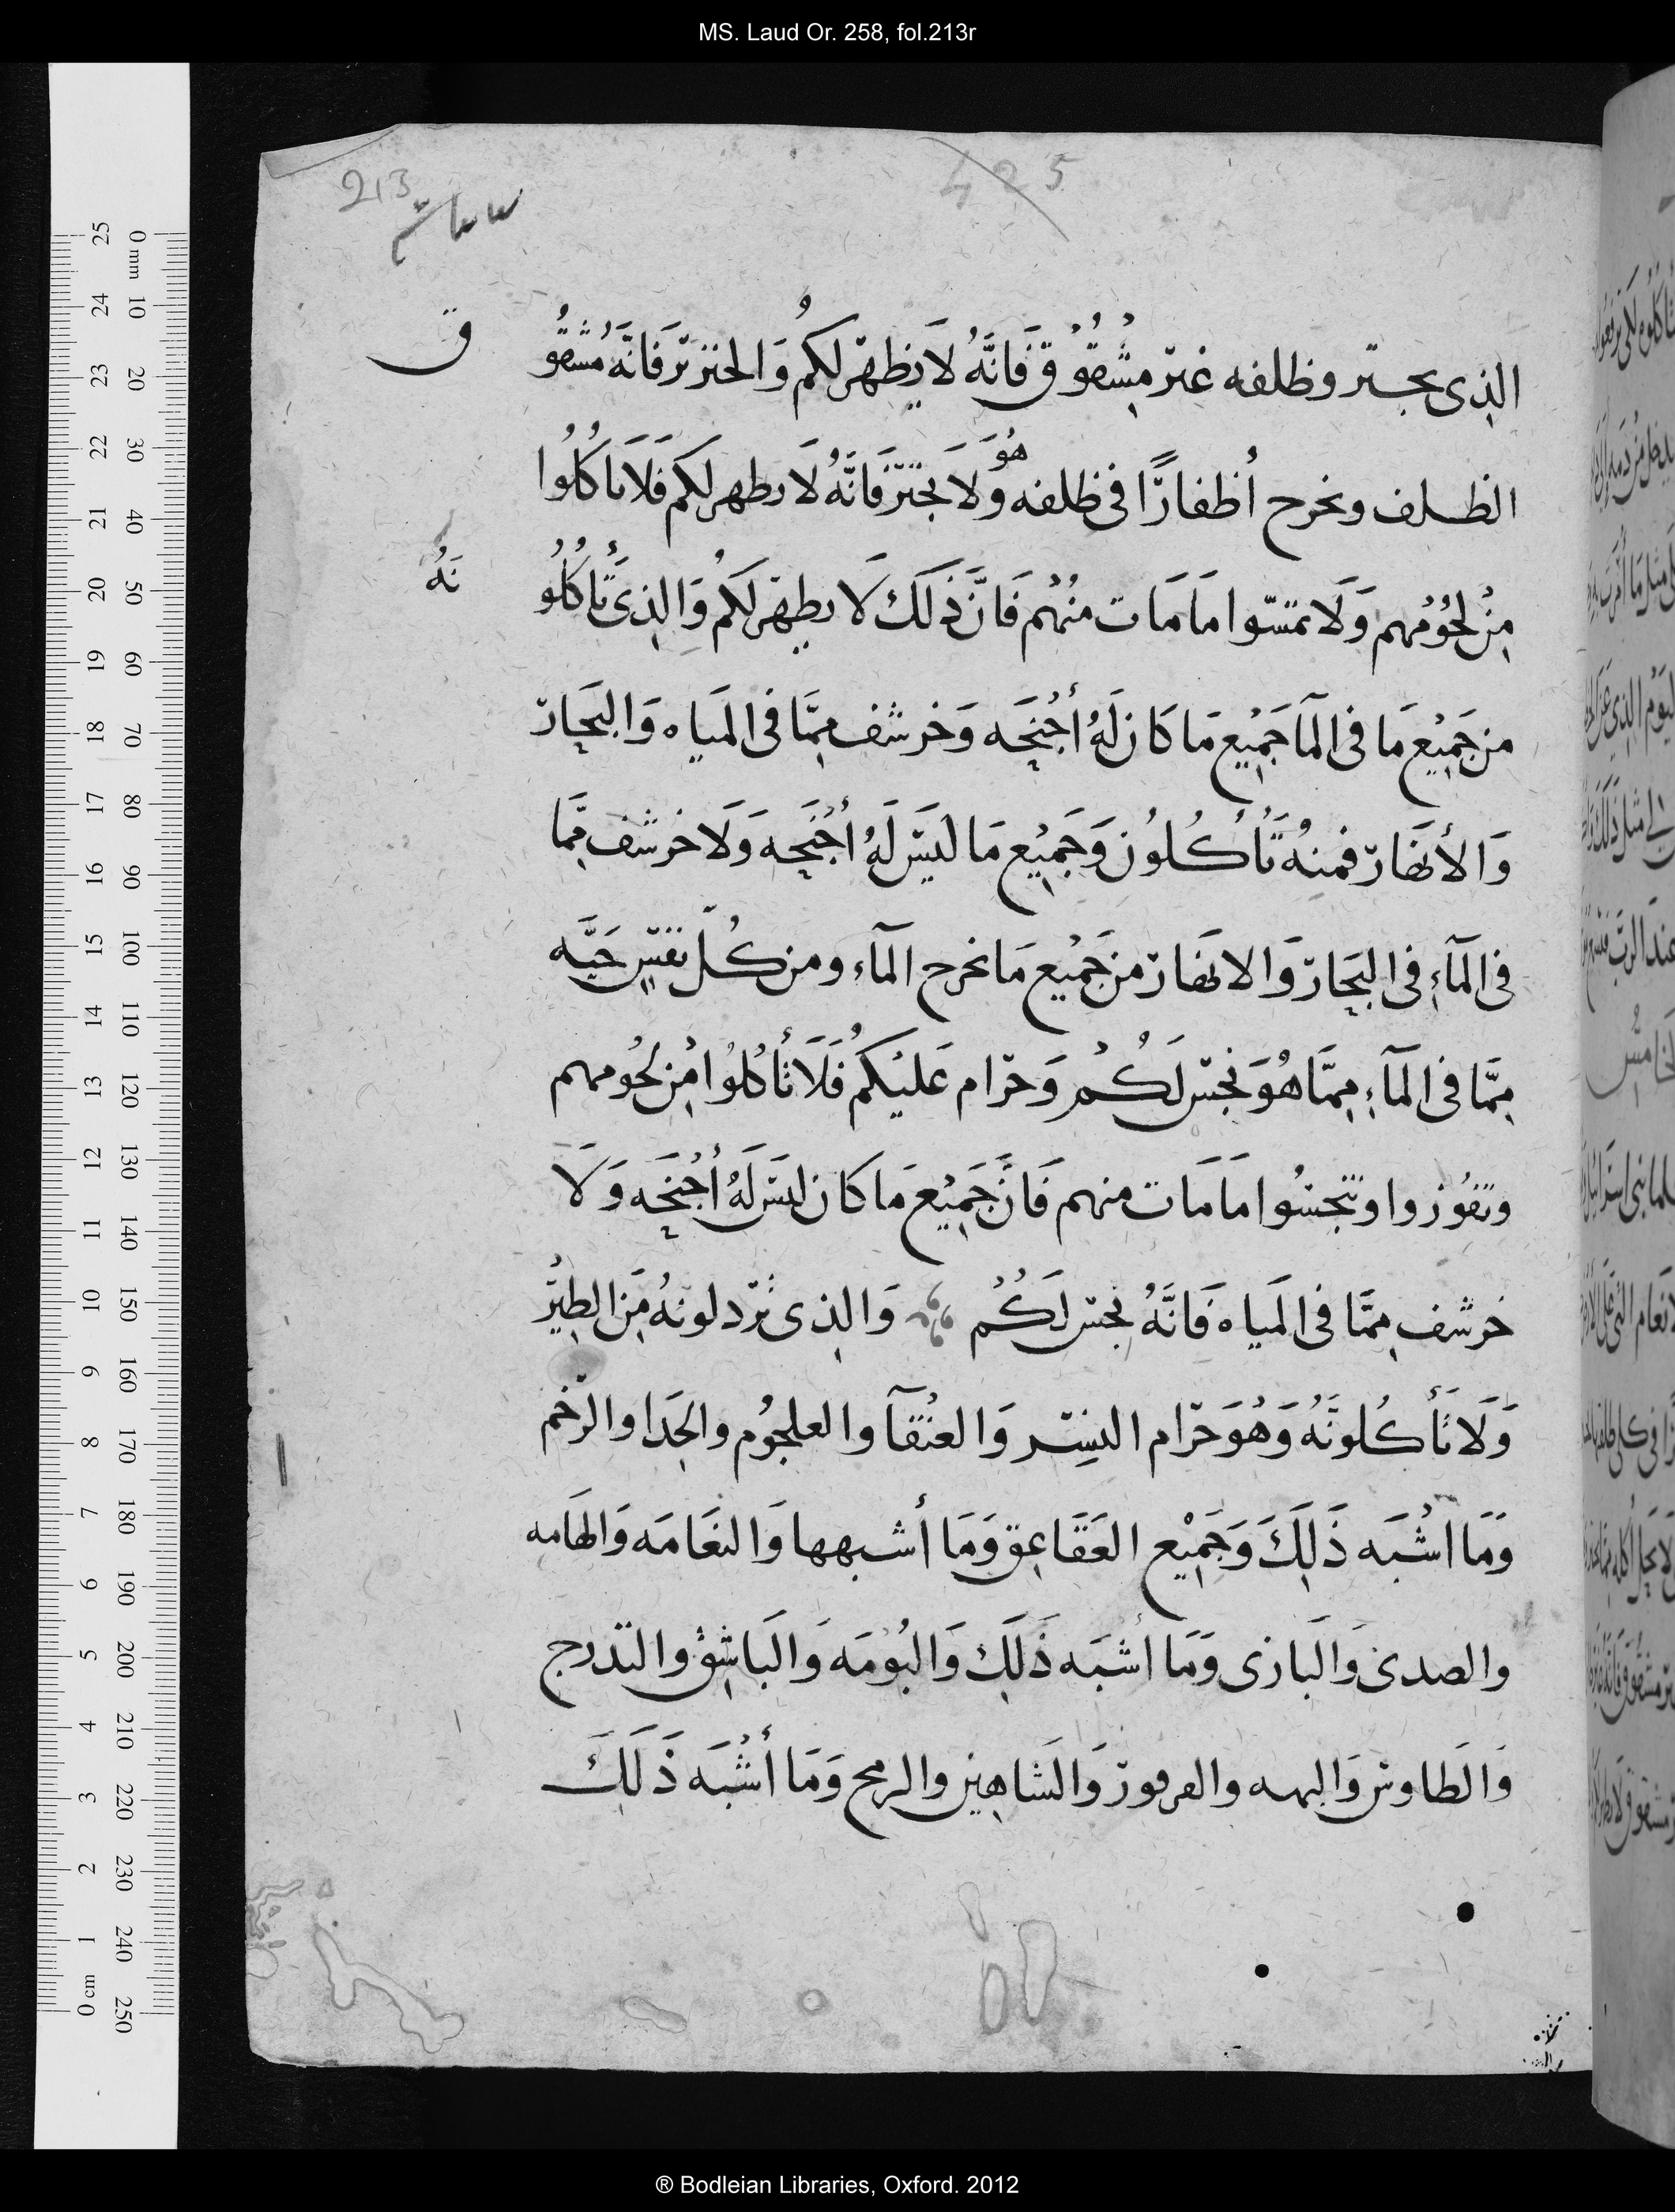 MS. Laud Or. 258, fol.213r
425
213
الذي يجتر وظلفه غير مشقوق فَانَّهُ لَا يظهر لكمُ وَالخنزير فَانَّهُ مُشقُو ق
الظلف ويخرج أظفارًا في ظلفه وَهُوَ لَا يجتر فَانَّهُ لَا يطهر لكم فَلَا تَاكُلُوا
مِنْ لحُوُمُهم وَلَا تمسّوا مَا مَات منهُم فَانَّ ذَلَك لَا يطهر لَكمُ وَالذِي تُأكُلُو نَهُ
من جَمِيْع مَا في المآ جَمِيْع مَا كَان لَهُ أجْنِحَه وَخرشف مِمَّا في المَياه وَالبِحَار
وَالأنهَار فمنهُ تَأْكُلُون وَجَمِيْع مَا ليَس لَهُ أجْنِحَه وَلَا خرشف مِّمَا
في المآءِ في البِحَار وَالانهَار من جَمِيْع مَا يخرج المآء ومن كُلّ نفسٍ حَيَّه
مِمَّا في المآءِ مِمَّا هُوَ نجس لَكُم وَحرَام عَليْكمُ فَلَا تَأكُلُوا مِنْ لحُومهم
وتفُوزوا وتنجسُوا مَا مَات منهم فَانَّ جَمِيْع مَا كَان ليس لَهُ أجْنِحَه وَلَا
خرشف مِمَّا في المَياه فَانَّهُ نجس لَكُم وَالذي تردلونهُ مِن الطِيْر
وَلَا تَأكُلونَهُ وَهُوَ حرَام النسِر وَالعُنْقآ والعلجُوم والحِدَا والرخم
وَمَا اشْبَه ذَلِكَ وَجَمِيْع العَقَاعِق وَمَا أشبهها وَالنعَامَه وَالهَامه
والصدى وَالبَازى وَمَا أشبَه ذَلَكِ وَالبُومَه وَالبَاشِق والتدرج
وَالطاوس وَالبهه والفرفور وَالشَاهِين والرمح وَمَا أشْبَه ذَلَكِ
® Bodleian Libraries, Oxford. 2012